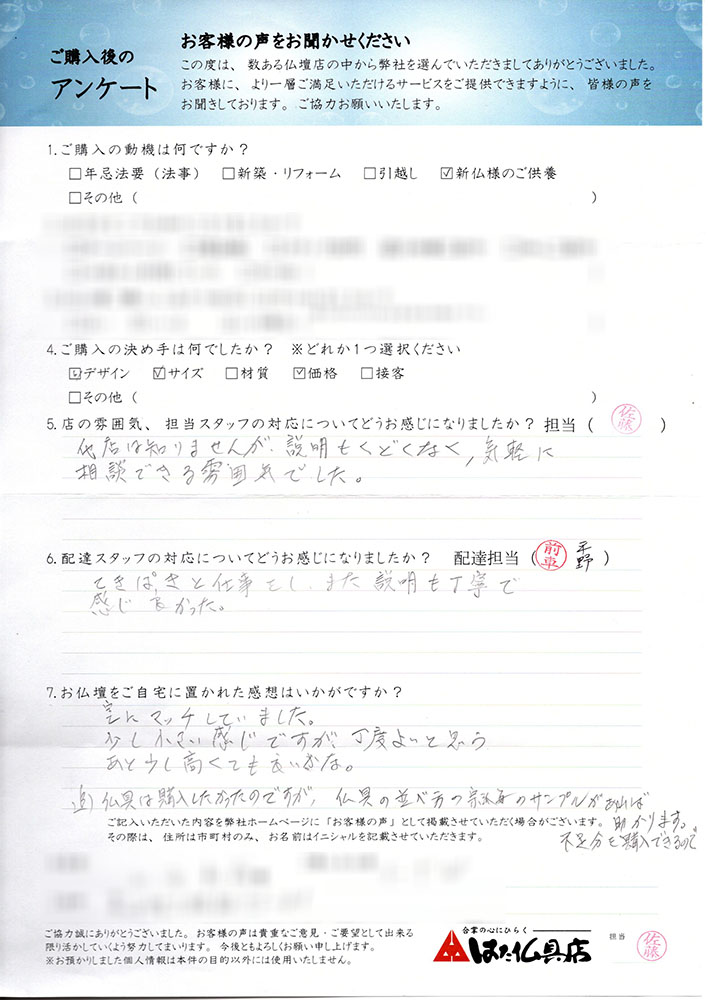 ご購入後の
アンケート
お客様の声をお聞かせください
この度は、数ある仏壇店の中から弊社を選んでいただきましてありがとうございました。
お客様に、より一層ご満足いただけるサービスをご提供できますように、皆様の声を
お聞きしております。ご協力お願いいたします。
1.ご購入の動機は何ですか？
□年忌法要（法事） □新築・リフォーム □引越し ☑新仏様のご供養
□その他（ ）
4.ご購入の決め手は何でしたか？ ※どれか1つ選択ください
☑デザイン ☑サイズ □材質 ☑価格 □接客
□その他（ ）
5.店の雰囲気、担当スタッフの対応についてどうお感じになりましたか？ 担当（ 佐藤 ）
店は知りませんが、説明もくどくなく、気軽に
相談できる雰囲気でした。
6.配達スタッフの対応についてどうお感じになりましたか？ 配達担当（ 前車 平野 ）
てきぱきと仕事をし、また説明も丁寧で
感じ良かった。
7.お仏壇をご自宅に置かれた感想はいかがですか？
室にマッチしていました。
少し小さい感じですが、丁度よいと思う
あと少し高くても良いかな。
追）仏具は購入したかったのですが、仏具の並べ方の宗派毎のサンプルがあれば
助かります。
不足分を購入できるので
ご記入いただいた内容を弊社ホームページに「お客様の声」として掲載させていただく場合がございます。
その際は、住所は市町村のみ、お名前はイニシャルを記載させていただきます。
ご協力誠にありがとうございました。お客様の声は貴重なご意見・ご要望として出来る
限り活かしていくよう努力してまいります。今後ともよろしくお願い申し上げます。
※お預かりしました個人情報は本件の目的以外には使用いたしません。
合掌の心にひらく
はた仏具店
担当
佐藤